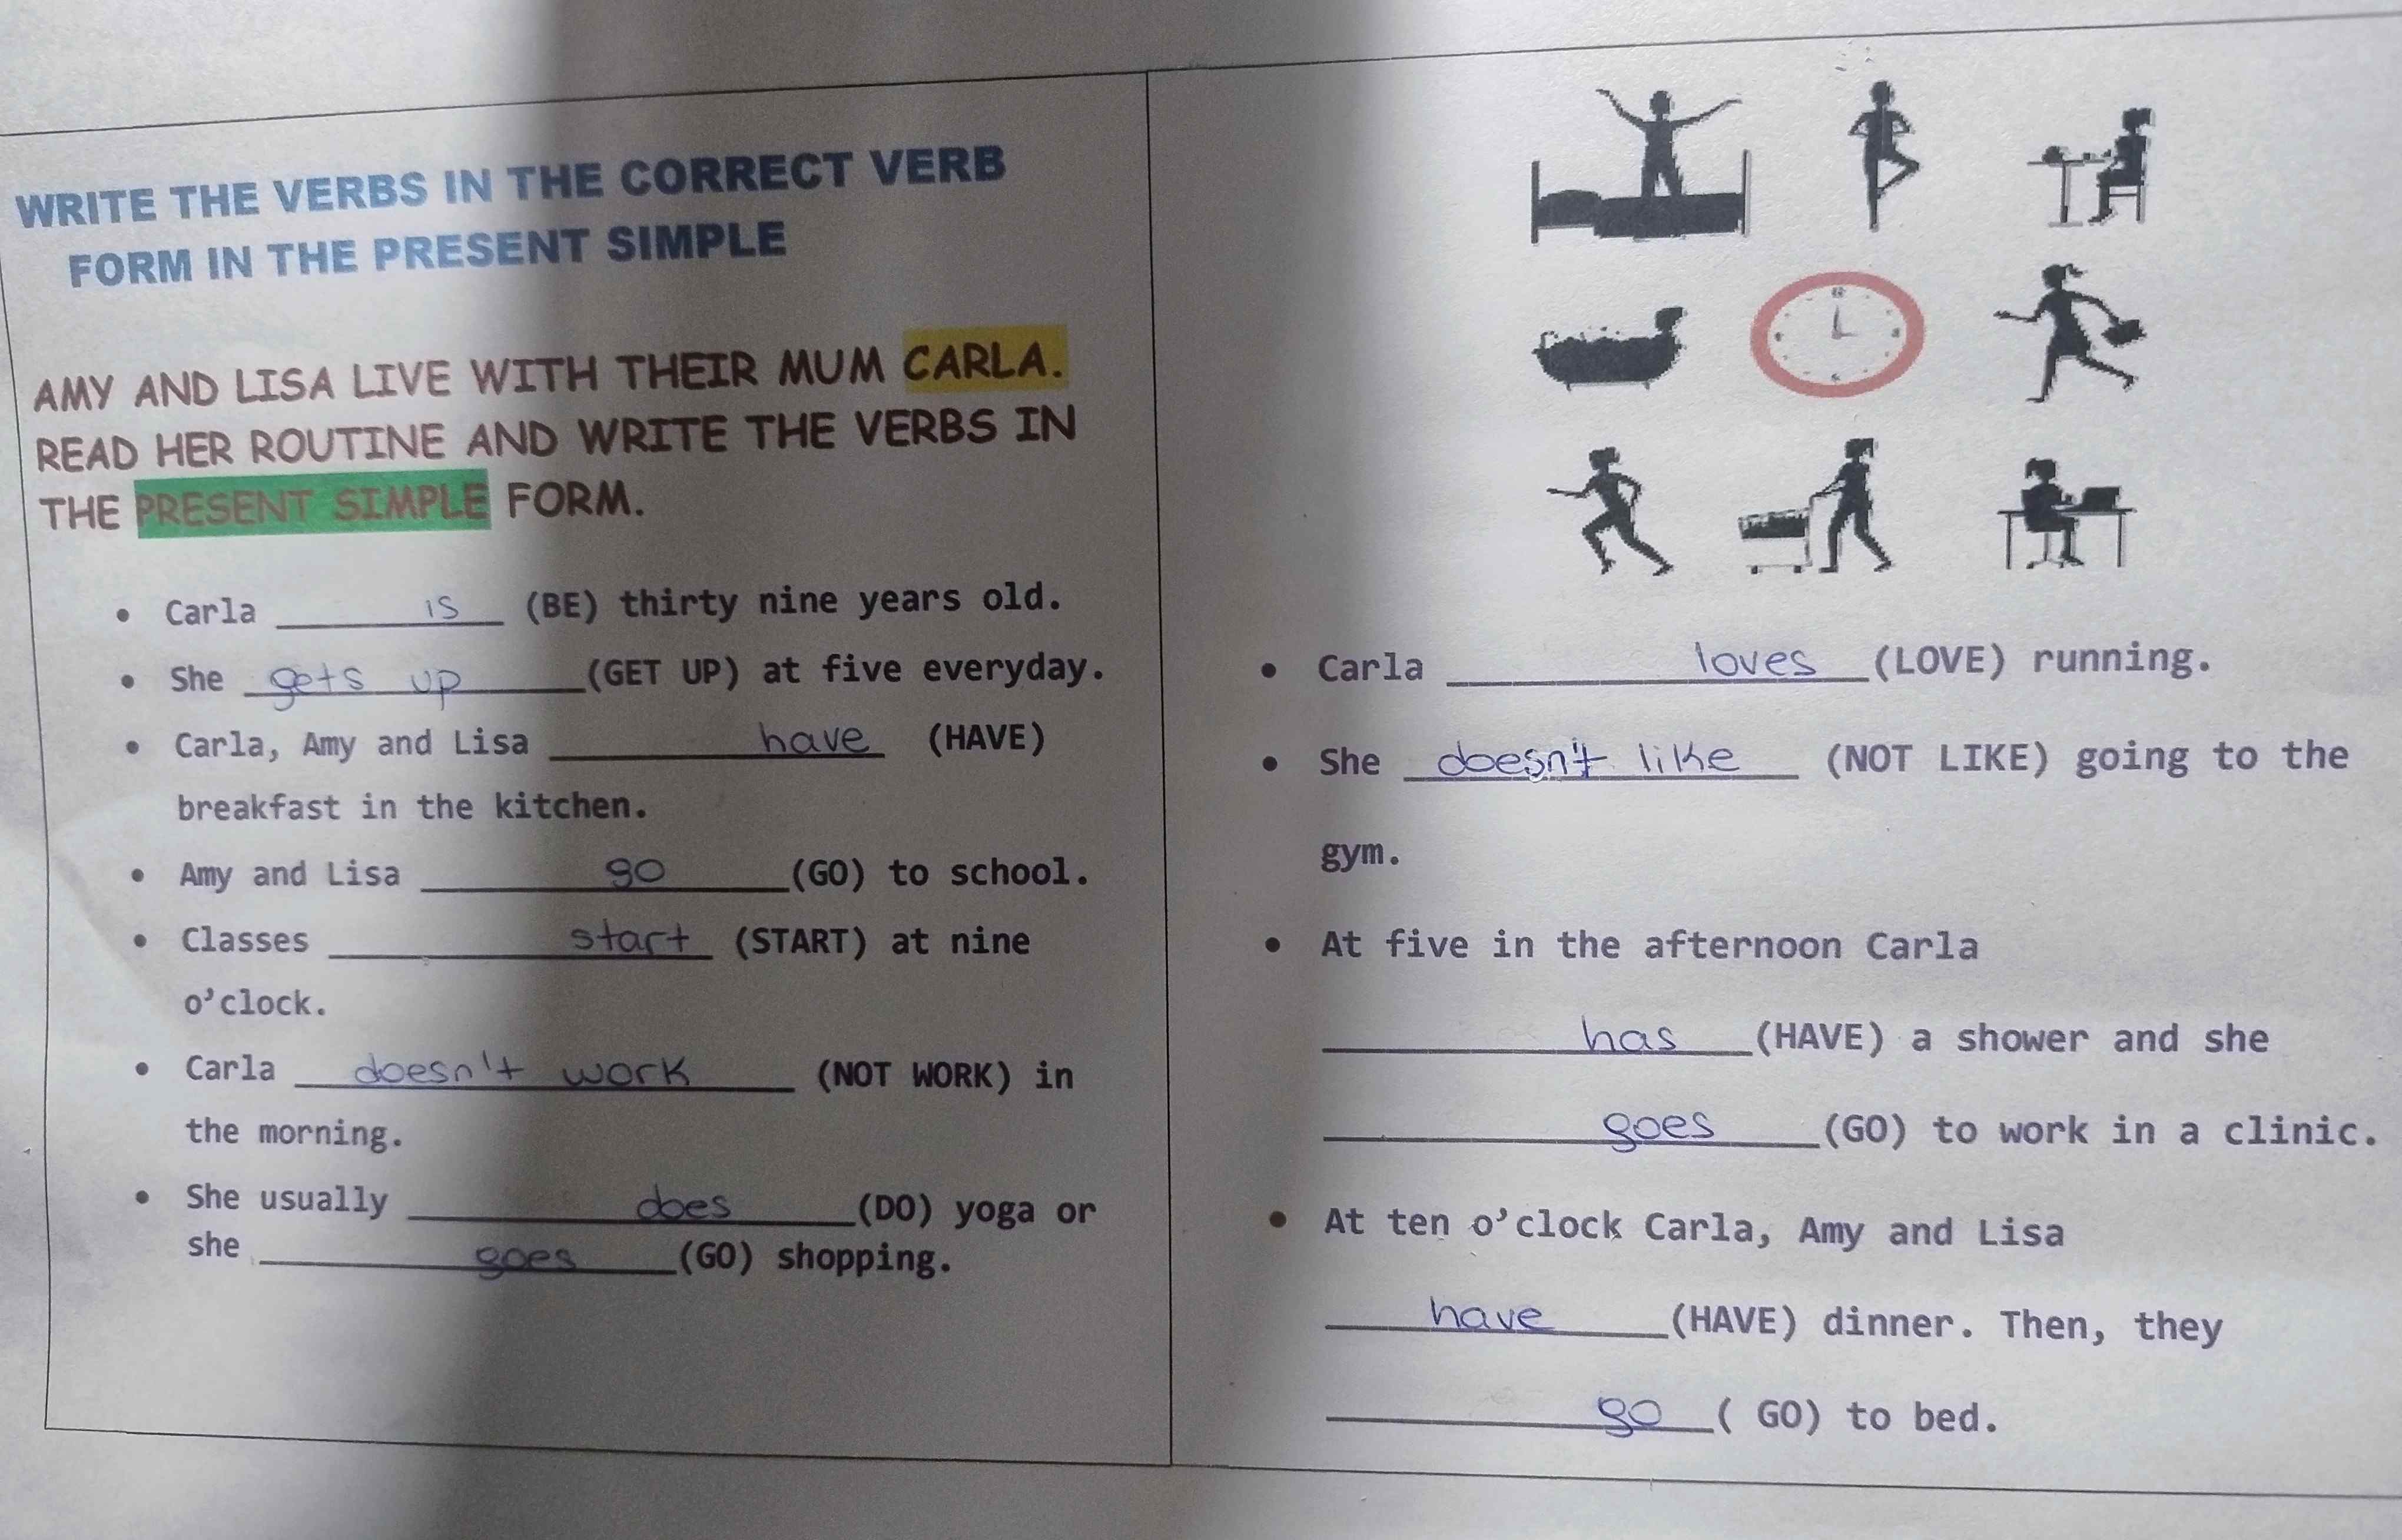 WRITE THE VERBS IN THE CORRECT VERB
FORM IN THE PRESENT SIMPLE
AMY AND LISA LIVE WITH THEIR MUM CARLA.
READ HER ROUTINE AND WRITE THE VERBS IN
THE PRESENT SIMPLE FORM.
• Carla is (BE) thirty nine years old.
• She gets up (GET UP) at five everyday.
• Carla, Amy and Lisa have (HAVE)
breakfast in the kitchen.
• Amy and Lisa go (GO) to school.
• Classes start (START) at nine
o'clock.
• Carla doesn't work (NOT WORK) in
the morning.
• She usually does (DO) yoga or
she goes (GO) shopping.
• Carla loves (LOVE) running.
• She doesn't like (NOT LIKE) going to the
gym.
• At five in the afternoon Carla
has (HAVE) a shower and she
goes (GO) to work in a clinic.
• At ten o'clock Carla, Amy and Lisa
have (HAVE) dinner. Then, they
go ( GO) to bed.